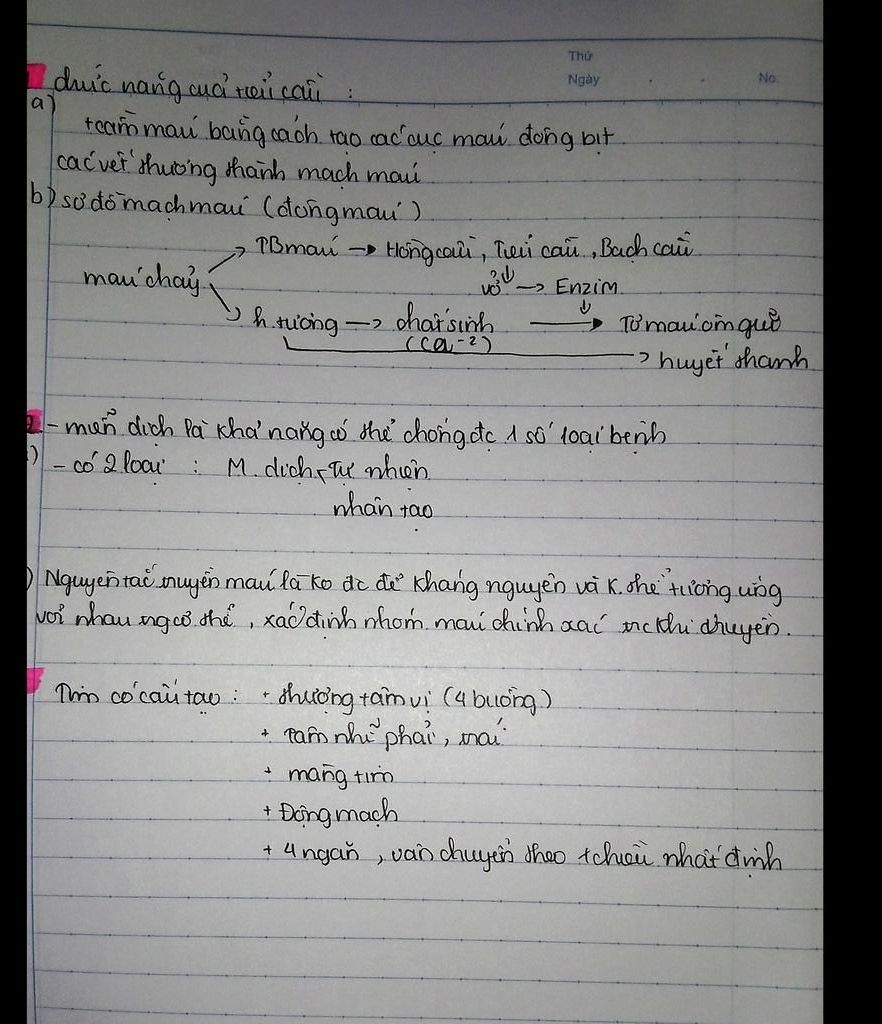 Thứ
Ngày . . No.
1 chức năng của tiểu cầu :
a)
+ cầm máu bằng cách tạo các cục máu đông bịt
các vết thương thành mạch máu
b) sơ đồ mạch máu (đông máu)
TB máu → Hồng cầu, Tiểu cầu, Bạch cầu
máu chảy vỡ → Enzim
h. tương → chất sinh → Tơ máu ôm giữ
(Ca-2)
→ huyết thanh
2 - miễn dịch là khả năng có thể chống đc 1 số loại bệnh
) - có 2 loại : M. dịch Tự nhiên
nhân tạo
) Nguyên tắc truyền máu là ko đc để kháng nguyên và K. thể tương ứng
với nhau ng cơ thể, xác định nhóm máu chính xác trc khi truyền.
Tim có cấu tạo : + thượng tâm vị (4 buồng)
+ Tâm nhĩ phải, trái
+ màng tim
+ Động mạch
+ 4 ngăn, vận chuyển theo 1 chiều nhất định